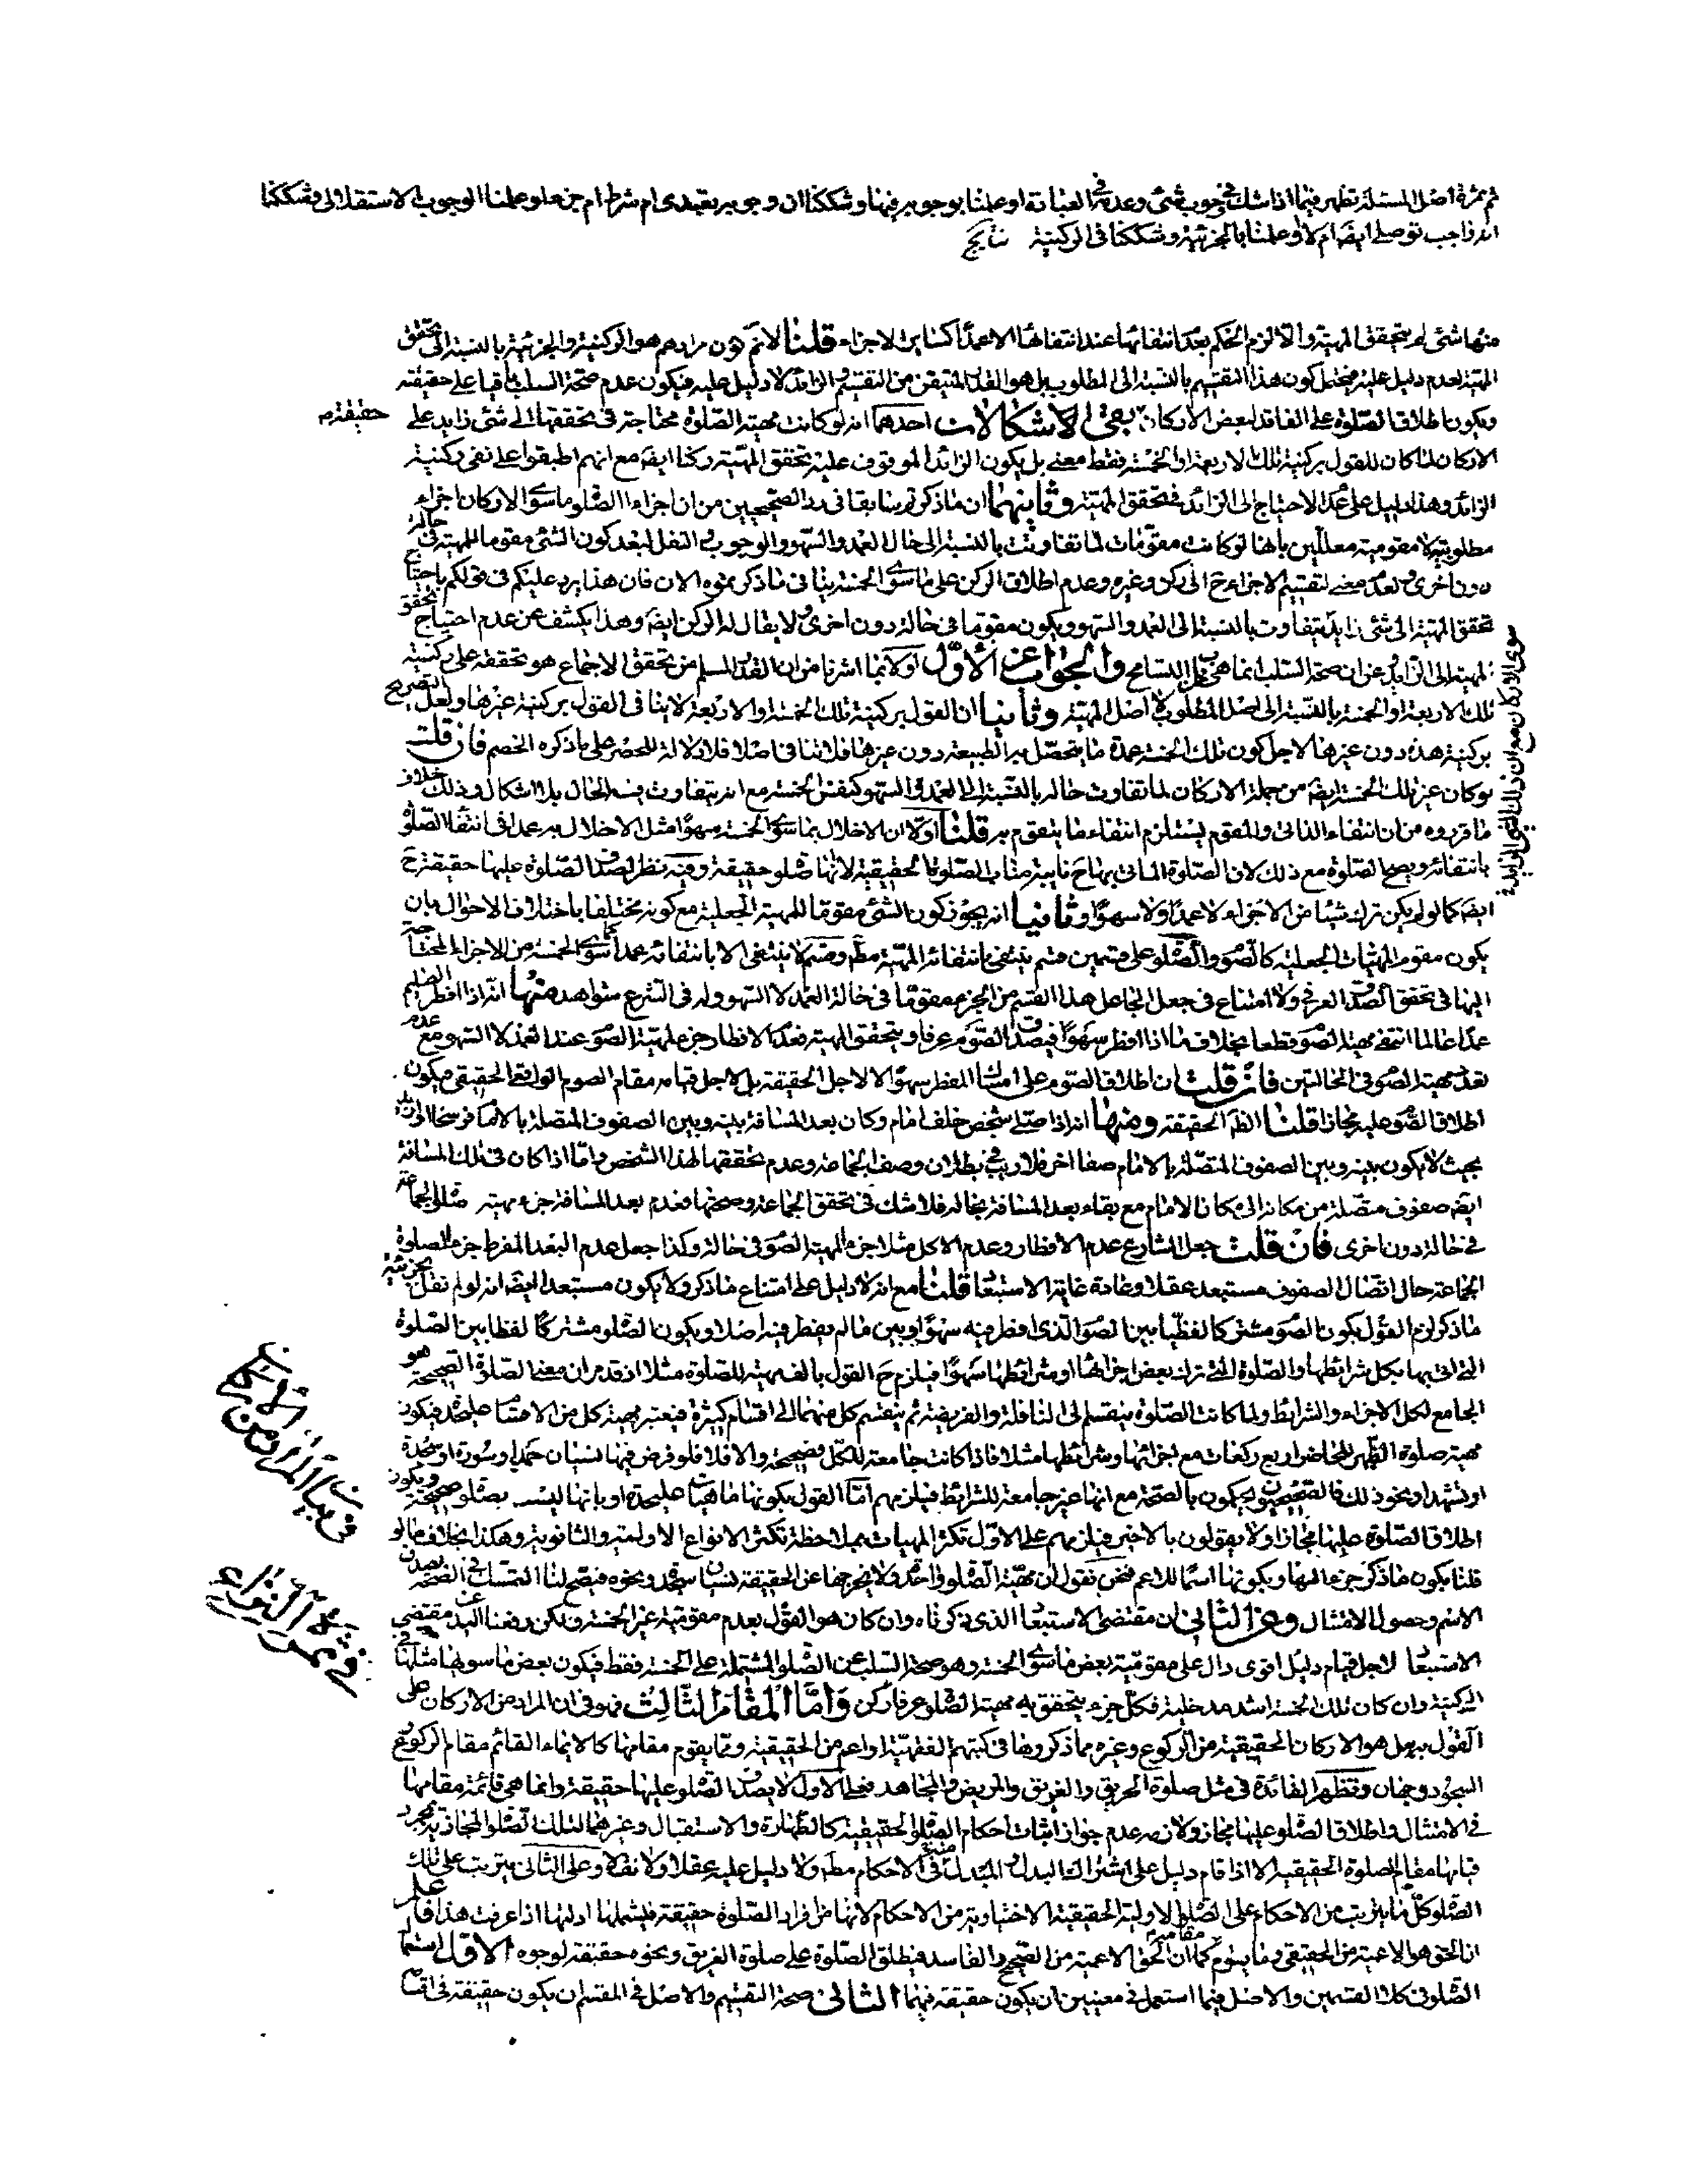 ثم ثمرة اصل المسئلة تظهر فيما اذا شك في وجوب شئ وعدمه في العبادة او علمنا بوجوبه فيها وشككنا ان وجوبه تعبدى ام شرط ام جزء او علمنا الوجوب الاستقلالى وشككنا
انه واجب توصلى ايضا ام لا او علمنا بالجزئية وشككنا فى الركنية نتايج
منها شئ لم يتحقق المهية والا لزم الحكم بعد انتفائها عند انتفائها لا عمدا كساير الاجزاء قلنا لا نم كون مرادهم هو الركنية والجزئية بالنسبة الى تحقق
المهية لعدم دليل عليه فيحتمل كون هذا التقسيم بالنسبة الى المطلوب بل هو القدر المتيقن من التقسيم والزائد لا دليل عليه فيكون عدم صحة السلب باقيا على حقيقته
ويكون اطلاق الصلوة على الفاقد لبعض الاركان حقيقة بقى الاشكالات احدهما انه لو كانت مهية الصلوة محتاجة فى تحققها الى شئ زايد على
الاركان لما كان للقول بركنية تلك الاربعة او الخمسة فقط معنى بل يكون الزائد الموقوف عليه تحقق المهية ركنا ايضا مع انهم اطبقوا على نفى ركنية
الزائد وهذا دليل على عدم الاحتياج الى الزائد فى تحقق المهية وثانيهما ان ما ذكرتم سابقا فى رد الصحيحيين من ان اجزاء الصلو ما سوى الاركان اجزاء
مطلوبية لا مقومية معللين بانها لو كانت مقومات لما تفاوتت بالنسبة الى حال العمد والسهو والوجوب والنفل لبعد كون الشئ مقوما للمهية فى حالة
دون اخرى ولعدم معنى لتقسيم الاجزاء ح الى ركن وغيره وعدم اطلاق الركن على ما سوى الخمسة ينافى ما ذكرتموه الان فان هذا يرد عليكم فى قولكم باحتياج
تحقق المهية الى شئ زايد يتفاوت بالنسبة الى العمد والسهو ويكون مقوما فى حالة دون اخرى ولا يقال له الركن ايضا وهذا يكشف عن عدم احتياج تحقق
المهية الى الزايد عن ان صحة السلب انما هى من التسامح والجواب عن الاول اولا بما اشرنا من ان القدر المسلم من تحقق الاجماع هو تحققه على ركنية
تلك الاربعة او الخمسة بالنسبة الى اصل المطلوب لا اصل المهية وثانيا ان القول بركنية تلك الخمسة والاربعة لا ينافى القول بركنية غيرها ولعل التصريح
بركنية هذه دون غيرها لاجل كون تلك الخمسة عمدة ما يتحصل به الطبيعة دون غيرها فلا تنافى اصلا فلا دلالة للحصر على ما ذكره الخصم فان قلت
لو كان غير تلك الخمسة ايضا من جملة الاركان لما تفاوت حاله بالنسبة الى العمد والسهو كنفس الخمسة مع انه يتفاوت فيه الحال بلا اشكال وذلك خلاف
ما قرروه من ان انتفاء الذاتى والمقوم يستلزم انتفاء ما يتقوم به قلنا اولا ان الاخلال بما سوى الخمسة سهوا مثل الاخلال به عمدا فى انتفاء الصلوة
بانتفائه ويصح الصلوة مع ذلك لان الصلوة المأتى بها ح نايبة مناب الصلوة الحقيقية لا انها صلو حقيقة وفيه نظر لصدق الصلوة عليها حقيقة ح
ايضا كما لو لم يكن ترك شيئا من الاجزاء لا عمدا ولا سهوا وثانيا انه يجوز كون الشئ مقوما للمهية الجعلية مع كونه مختلفا باختلاف الاحوال بان
يكون مقوم المهيات الجعلية كالصوم والصلو على قسمين قسم ينتفى بانتفائه المهية مطم وقسم لا ينتفى الا بانتفائه عمدا كما سوى الخمسة من الاجزاء المحتاجة
اليها فى تحقق الصدق العرفى ولا امتناع فى جعل الجاعل هذا القسم من الجزء مقوما فى حالة العمد لا السهو وله فى الشرع شواهد منها انه اذا افطر الصائم
عمدا عالما انتفى مهية الصوم قطعا بخلاف ما اذا افطر سهوا فيصدق الصوم عرفا ويتحقق المهية فعدم الافطار جزء لمهية الصوم عند العمد لا السهو مع عدم
تعدد مهية الصوم فى الحالتين فان قلت ان اطلاق الصوم على امساك المفطر سهوا لا لاجل الحقيقة بل لاجل قيامه مقام الصوم الواقعى الحقيقى فيكون
اطلاق الصوم عليه مجازا قلنا الظ الحقيقة ومنها انه اذا صلى شخص خلف امام وكان بعد المسافة بينه وبين الصفوف المتصلة بالامام
بحيث لا يكون بينه وبين الصفوف المتصلة بالامام صفا اخر فلا ريب فى بطلان وصف الجماعة وعدم تحققها لهذا الشخص واما اذا كان فى تلك المسافة
ايضا صفوف متصلة من مكانه الى مكان الامام مع بقاء بعد المسافة بحاله فلا شك فى تحقق الجماعة وصحتها فعدم بعد المسافة جزء مهية صلو الجماعة
فى حالة دون اخرى فان قلت جعل الشارع عدم الافطار وعدم الاكل مثلا جزء لمهية الصوم فى حالة وكذا جعل عدم البعد المفرط جزء لصلوة
الجماعة حال اتصال الصفوف مستبعد عقلا وعادة غاية الاستبعاد قلنا مع انه لا دليل على امتناع ما ذكر ولا يكون مستبعدا ايضا انه لو لم نقل بجزئية
ما ذكر لزم القول بكون الصوم مشتركا لفظيا بين الصوم الذى افطر فيه سهوا وبين ما لم يفطر فيه اصلا ويكون الصلو مشتركا لفظا بين الصلوة
التى اتى بها بكل شرائطها والصلوة التى ترك بعض اجزائها او شرائطها سهوا فيلزم ح القول بالف مهية للصلوة مثلا اذ قد مر ان معنى الصلوة الصحيحة هو
الجامع لكل الاجزاء والشرائط ولما كانت الصلوة ينقسم الى النافلة والفريضة ثم ينقسم كل منهما الى اقسام كثيرة فيعتبر مهية كل من الاقسام عليحدة فيكون
مهية صلوة الظهر للحاضر اربع ركعات مع اجزائها وشرائطها مثلا فاذا كانت جامعة للكل فصحيحة والا فلا فلو فرض فيها نسيان حمد او سورة او سجدة
او تشهد او نحو ذلك فالصحيحيون يحكمون بالصحة مع انها غير جامعة للشرائط فيلزمهم اما القول بكونها ماهية عليحدة او بانها ليست بصلو صحيحة ويكون
اطلاق الصلوة عليها مجازا ولا يقولون بالاخير فيلزمهم على الاول تكثر المهيات بملاحظة تكثر الانواع الاولية والثانوية وهكذا بخلاف ما لو
قلنا بكون ما ذكر جزءا لها وبكونها اسما للاعم فنحن نقول ان مهية الصلو واحدة ولا يخرجها عن الحقيقة نسيان سجدة ونحوه فيصح لنا التمسك فى الصحة بصدق
الاسم وحصول الامتثال وعن الثانى ان مقتضى الاستبعاد الذى ذكرناه وان كان هو القول بعدم مقومية غير الخمسة ولكن رفعنا اليد عن مقتضى
الاستبعاد لاجل قيام دليل اقوى دال على مقومية بعض ما سوى الخمسة وهو صحة السلب عن الصلو المشتملة على الخمسة فقط فيكون بعض ما سويها مثلها فى
الركنية وان كان تلك الخمسة اشد مدخلية فكل جزء يتحقق به مهية الصلو عرفا ركن واما المقام الثالث فهو فى ان المراد من الاركان على
القول به هل هو الاركان الحقيقية من الركوع وغيره مما ذكروها فى كتبهم الفقهية او اعم من الحقيقية ومما يقوم مقامها كالايماء القائم مقام الركوع
السجود وجهان وتظهر الفائدة فى مثل صلوة الحريق والغريق والمريض والمجاهد فعلى الاول لا يصدق الصلو عليها حقيقة وانما هى قائمة مقامها
فى الامتثال واطلاق الصلو عليها مجاز ولازمه عدم جواز اثبات احكام الصلو الحقيقية كالطهارة والاستقبال وغيرهما لتلك الصلو المجازية بمجرد
قيامها مقام الصلوة الحقيقية الا اذا قام دليل على اشتراك البدل والمبدل منه فى الاحكام مطم ولا دليل عليه عقلا ولا نقلا وعلى الثانى يترتب على تلك
الصلو كل ما يترتب من الاحكام على الصلو الاولية الحقيقية الاختيارية من الاحكام لانها من افراد الصلوة حقيقة فيشملها ادلتها اذا عرفت هذا فاعلم
ان الحق هو الاعمية من الحقيقى وما يقوم مقامه كما ان الحق الاعمية من الصحيح والفاسد فيطلق الصلوة على صلوة الغريق ونحوه حقيقة لوجوه الاول استعمال
الصلو فى كلا القسمين والاصل فيما استعمل فى معنيين ان يكون حقيقة فيهما الثانى صحة التقسيم والاصل فى المقسم ان يكون حقيقة فى اقسامه
حقيقة م
فى بيان المراد من الاركان
فى ثمرة النزاع